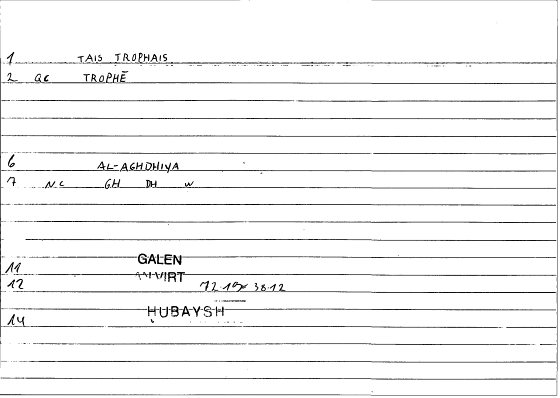 1 TAIS TROPHAIS
2 QC TROPHĒ
6 AL-AGHDHIYA
7 N.C GH DH W
11 GALEN
12 VIRT 38.12
14 HUBAYSH